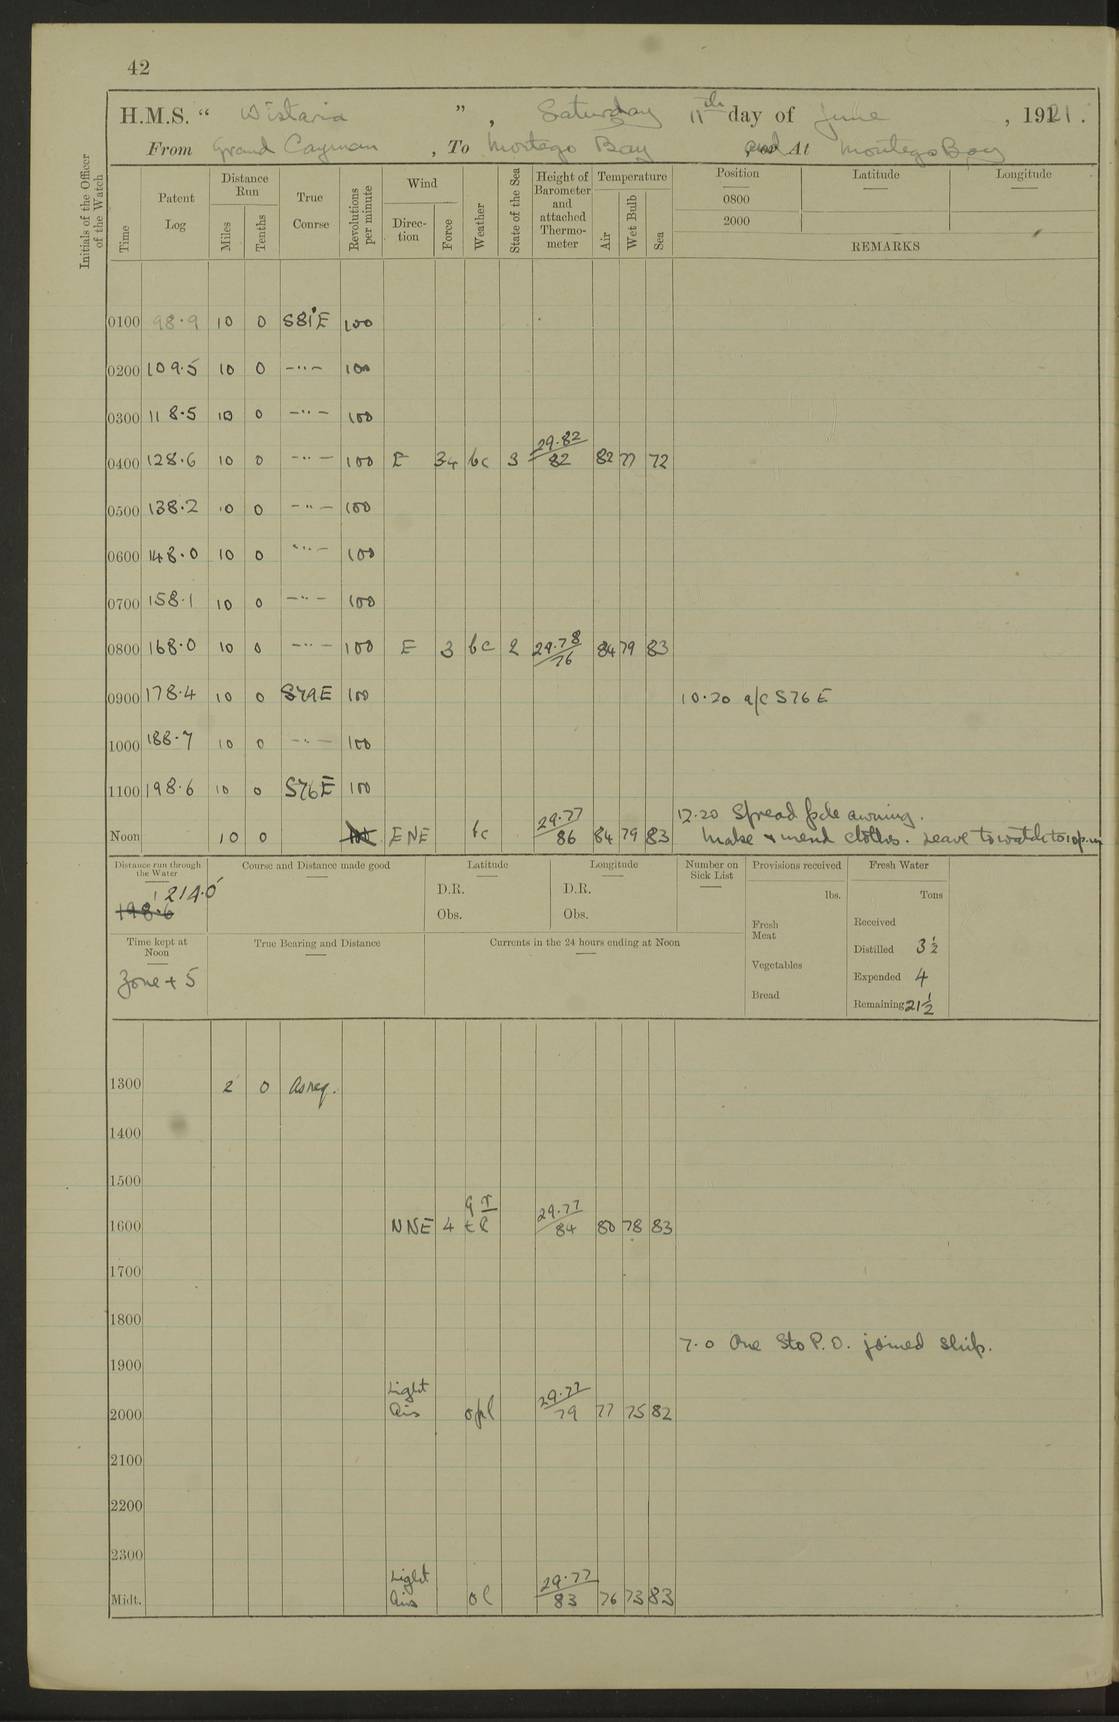 42
H.M.S. " Wistaria ", Saturday 11th day of June, 1921.
From Grand Cayman, To Montego Bay and At Montego Bay
Initials of the Officer of the Watch
Time
Patent Log
Distance Run
Miles
Tenths
True Course
Revolutions per minute
Wind
Direction
Force
Weather
State of the Sea
Height of Barometer and attached Thermometer
Temperature
Air
Wet Bulb
Sea
Position Latitude Longitude
0800
2000
REMARKS
0100 98.9 10 0 S81°E 100
0200 109.5 10 0 -"- 100
0300 118.5 10 0 -"- 100
0400 128.6 10 0 -"- 100 E 34 bc 3 29.82/82 82 77 72
0500 138.2 10 0 -"- 100
0600 148.0 10 0 "- 100
0700 158.1 10 0 -"- 100
0800 168.0 10 0 -"- 100 E 3 bc 2 29.78/76 84 79 83
0900 178.4 10 0 S79E 100 10.20 a/c S76E
1000 188.7 10 0 -"- 100
1100 198.6 10 0 S76E 100
12.20 Spread awning.
Noon 10 0 100 ENE bc 29.77/86 84 79 83 Make & mend clothes. Leave to watch to 10 p.m
Distance run through the Water
214.0
198.6
Course and Distance made good
Latitude
D.R.
Obs.
Longitude
D.R.
Obs.
Number on Sick List
Provisions received
lbs.
Fresh Meat
Vegetables
Bread
Fresh Water
Tons
Received
Distilled 3½
Expended 4
Remaining 21½
Time kept at Noon
Zone + 5
True Bearing and Distance
Currents in the 24 hours ending at Noon
1300 2 0 As req.
1400
1500
1600 NNE 4 29.77/84 80 78 83
1700
1800
7.0 One Sto P.O. joined ship.
1900
2000 Light Airs opl 29.77/79 77 75 82
2100
2200
2300
Midt. Light Airs ol 29.77/83 76 73 83